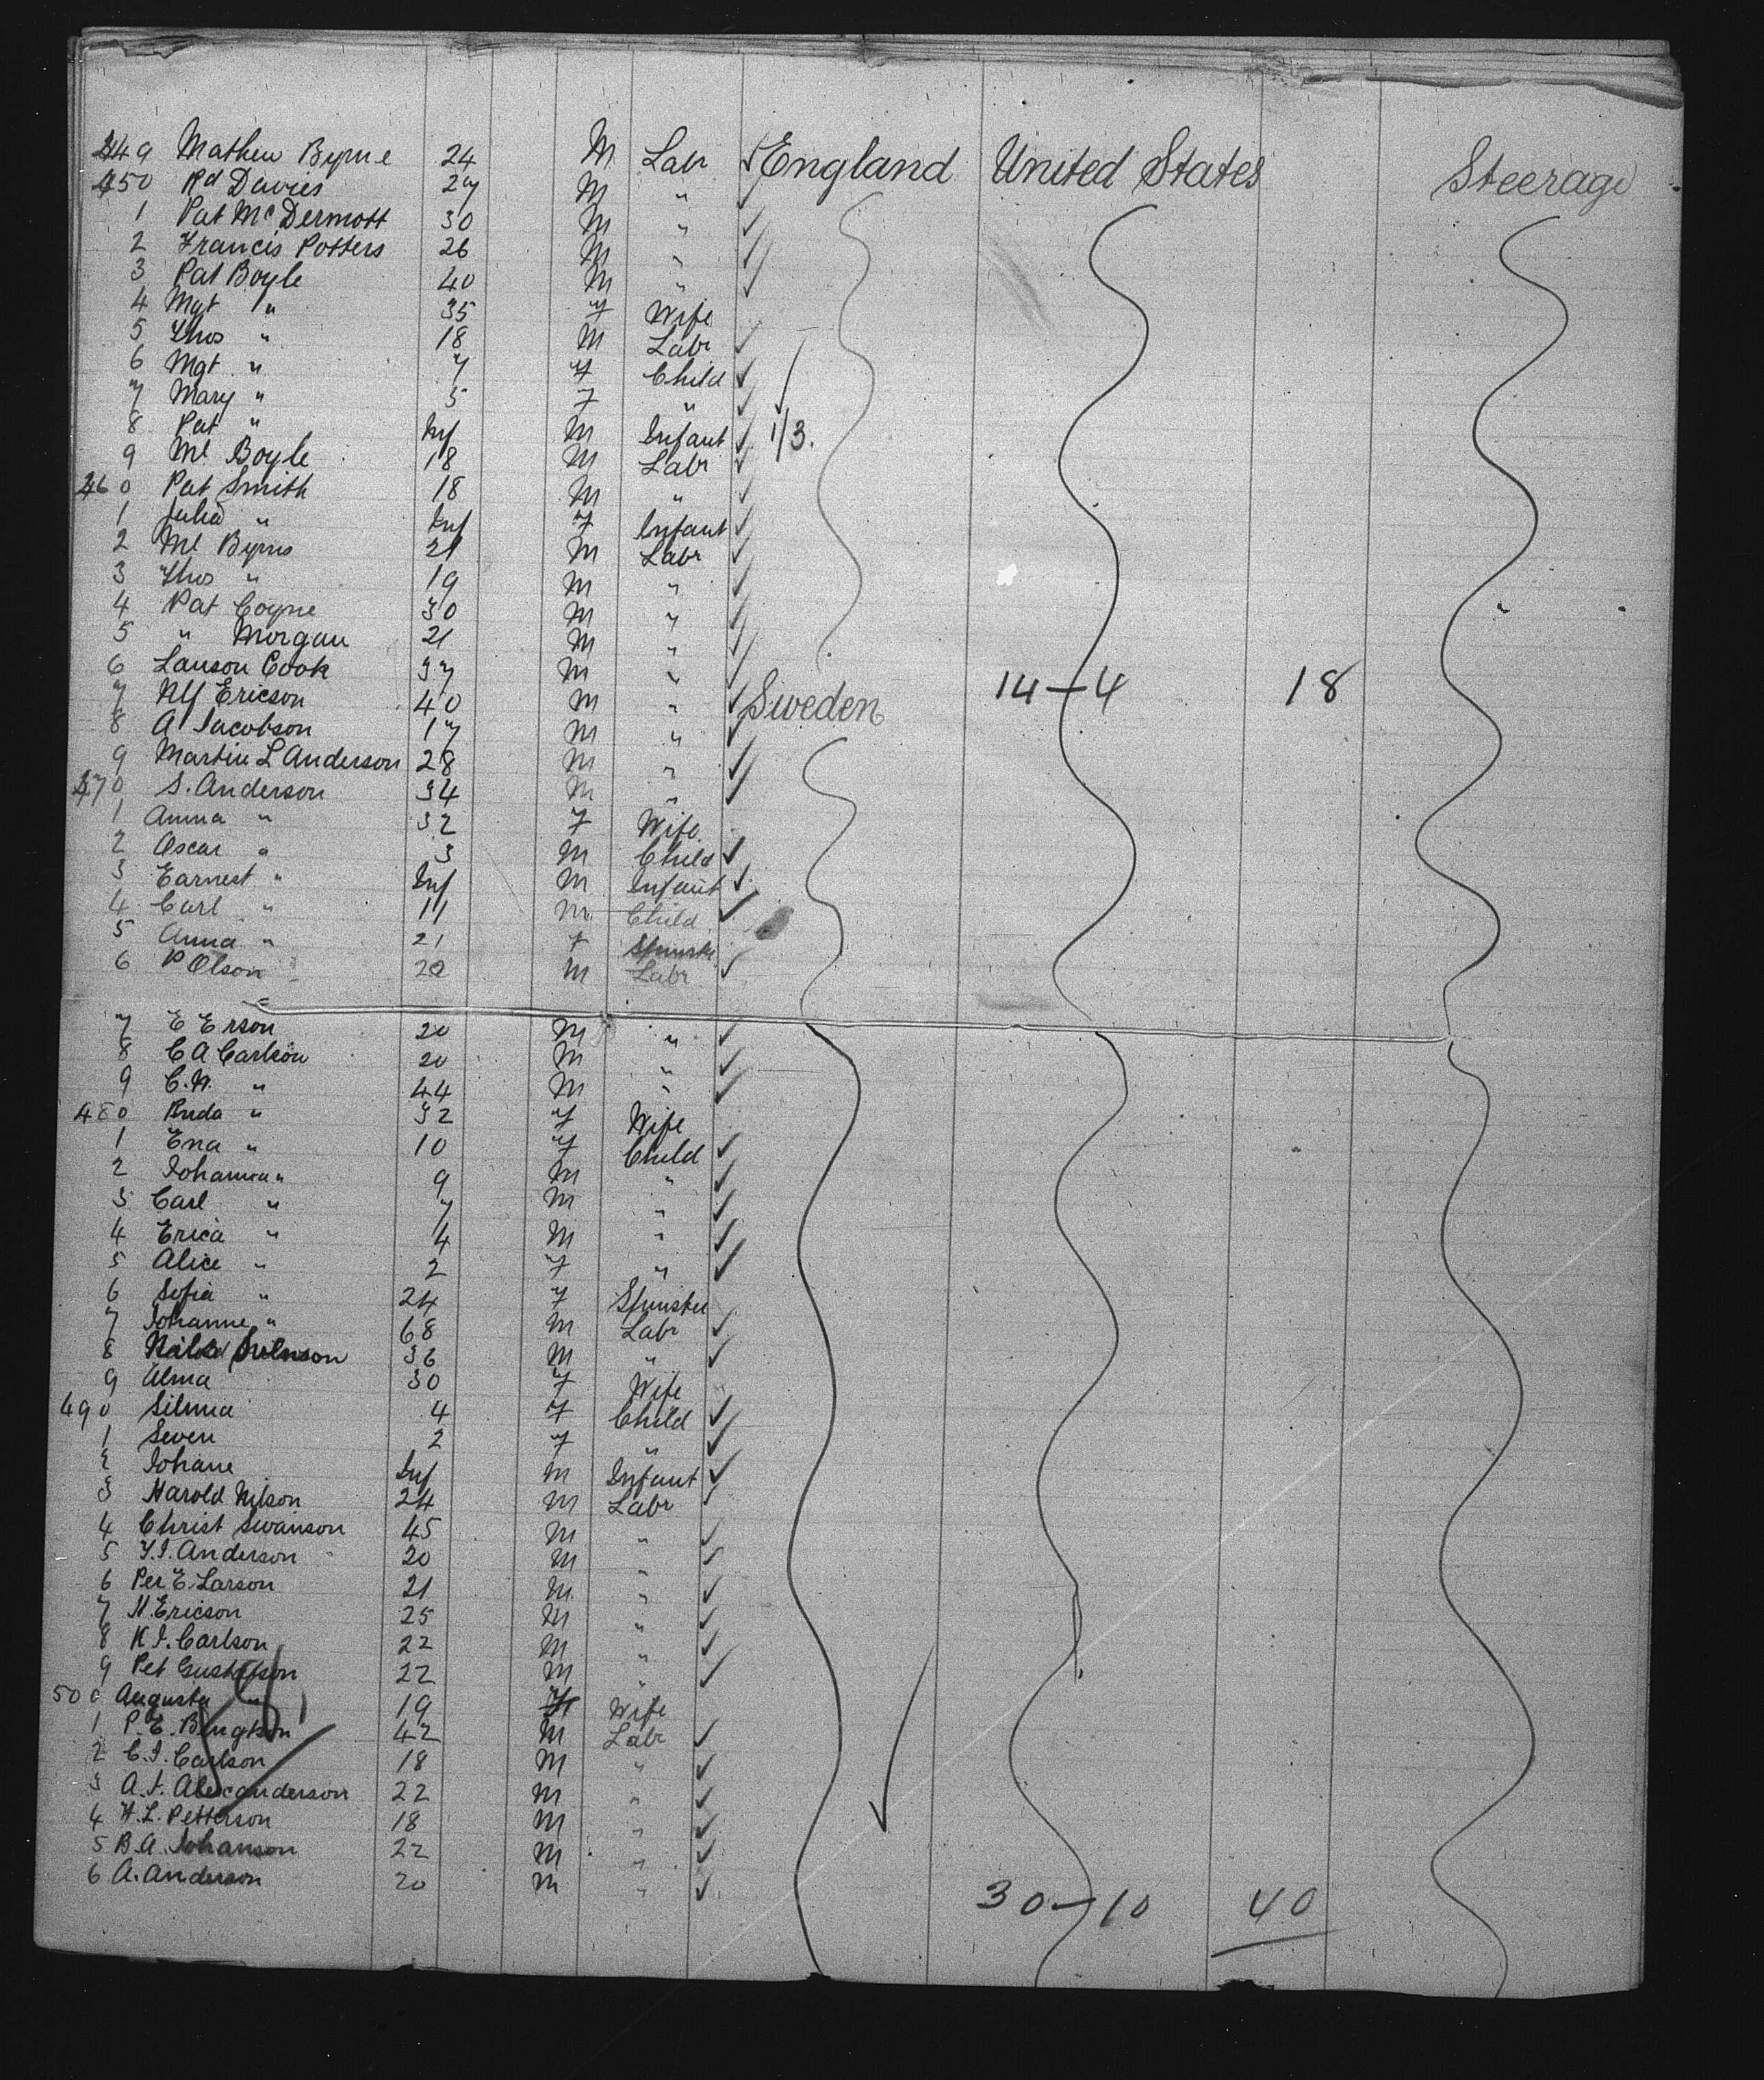 449 Mathew Byrne 24 M Labr England United States Steerage
450 Rd Davies 27 M "
1 Pat McDermott 30 M "
2 Francis Potters 26 M "
3 Pat Boyle 40 M "
4 Mgt " 35 F Wife
5 Thos " 18 M Labr
6 Mgt " 7 F Child
7 Mary " 5 F "
8 Pat " Inf M Infant 1/3.
9 Ml Boyle 18 M Labr
460 Pat Smith 18 M "
1 Julia " Inf F Infant
2 Ml Byrns 21 M Labr
3 Thos " 19 M "
4 Pat Coyne 30 M "
5 " Morgan 21 M "
6 Lauson Cook 37 M " 14-4 18
7 Ericson 40 M " Sweden
8 A Jacobson 17 M "
9 Martin L Anderson 28 M "
470 S. Anderson 34 M "
1 Anna " 32 F Wife
2 Oscar " 3 M Child
3 Earnest " Inf M Infant
4 Carl " 11 M Child
5 Anna " 21 F Spinster
6 P Olson 20 M Labr
7 E Erson 20 M "
8 C A Carlson 20 M "
9 C.N. " 44 M "
480 " 32 F Wife
1 Ena " 10 F Child
2 Johanna " 9 M "
3 Carl " 7 M "
4 Erica " 4 M "
5 Alice " 2 F "
6 Sofia " 24 F Spinster
7 Johanne " 68 M Labr
8 36 M "
9 Alma 30 F Wife
490 Silma 4 F Child
1 Seven 2 F "
2 Johane Inf M Infant
3 Harold Nilson 24 M Labr
4 Christ Swanson 45 M "
5 Anderson 20 M "
6 Per E. Larson 21 M "
7 N. Ericson 25 M "
8 K. J. Carlson 22 M "
9 Pet Gustafson 22 M "
500 Augusta " 19 F Wife
1 P. E. Bengtson 42 M Labr
2 C. J. Carlson 18 M "
3 A. F. Alexanderson 22 M "
4 H. L. Petterson 18 M "
5 B. A. Johanson 22 M "
6 A. Anderson 20 M " 30-10 40